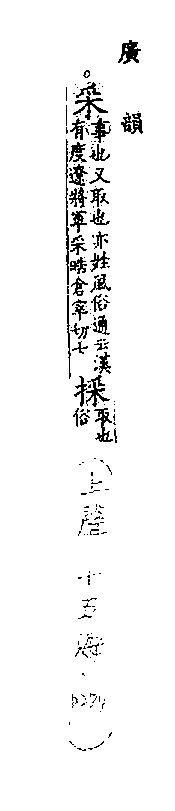 廣韻
采
事也又取也亦姓風俗通云漢
有度遼將軍采晧倉宰切七
採
取也
俗
上聲
十五海